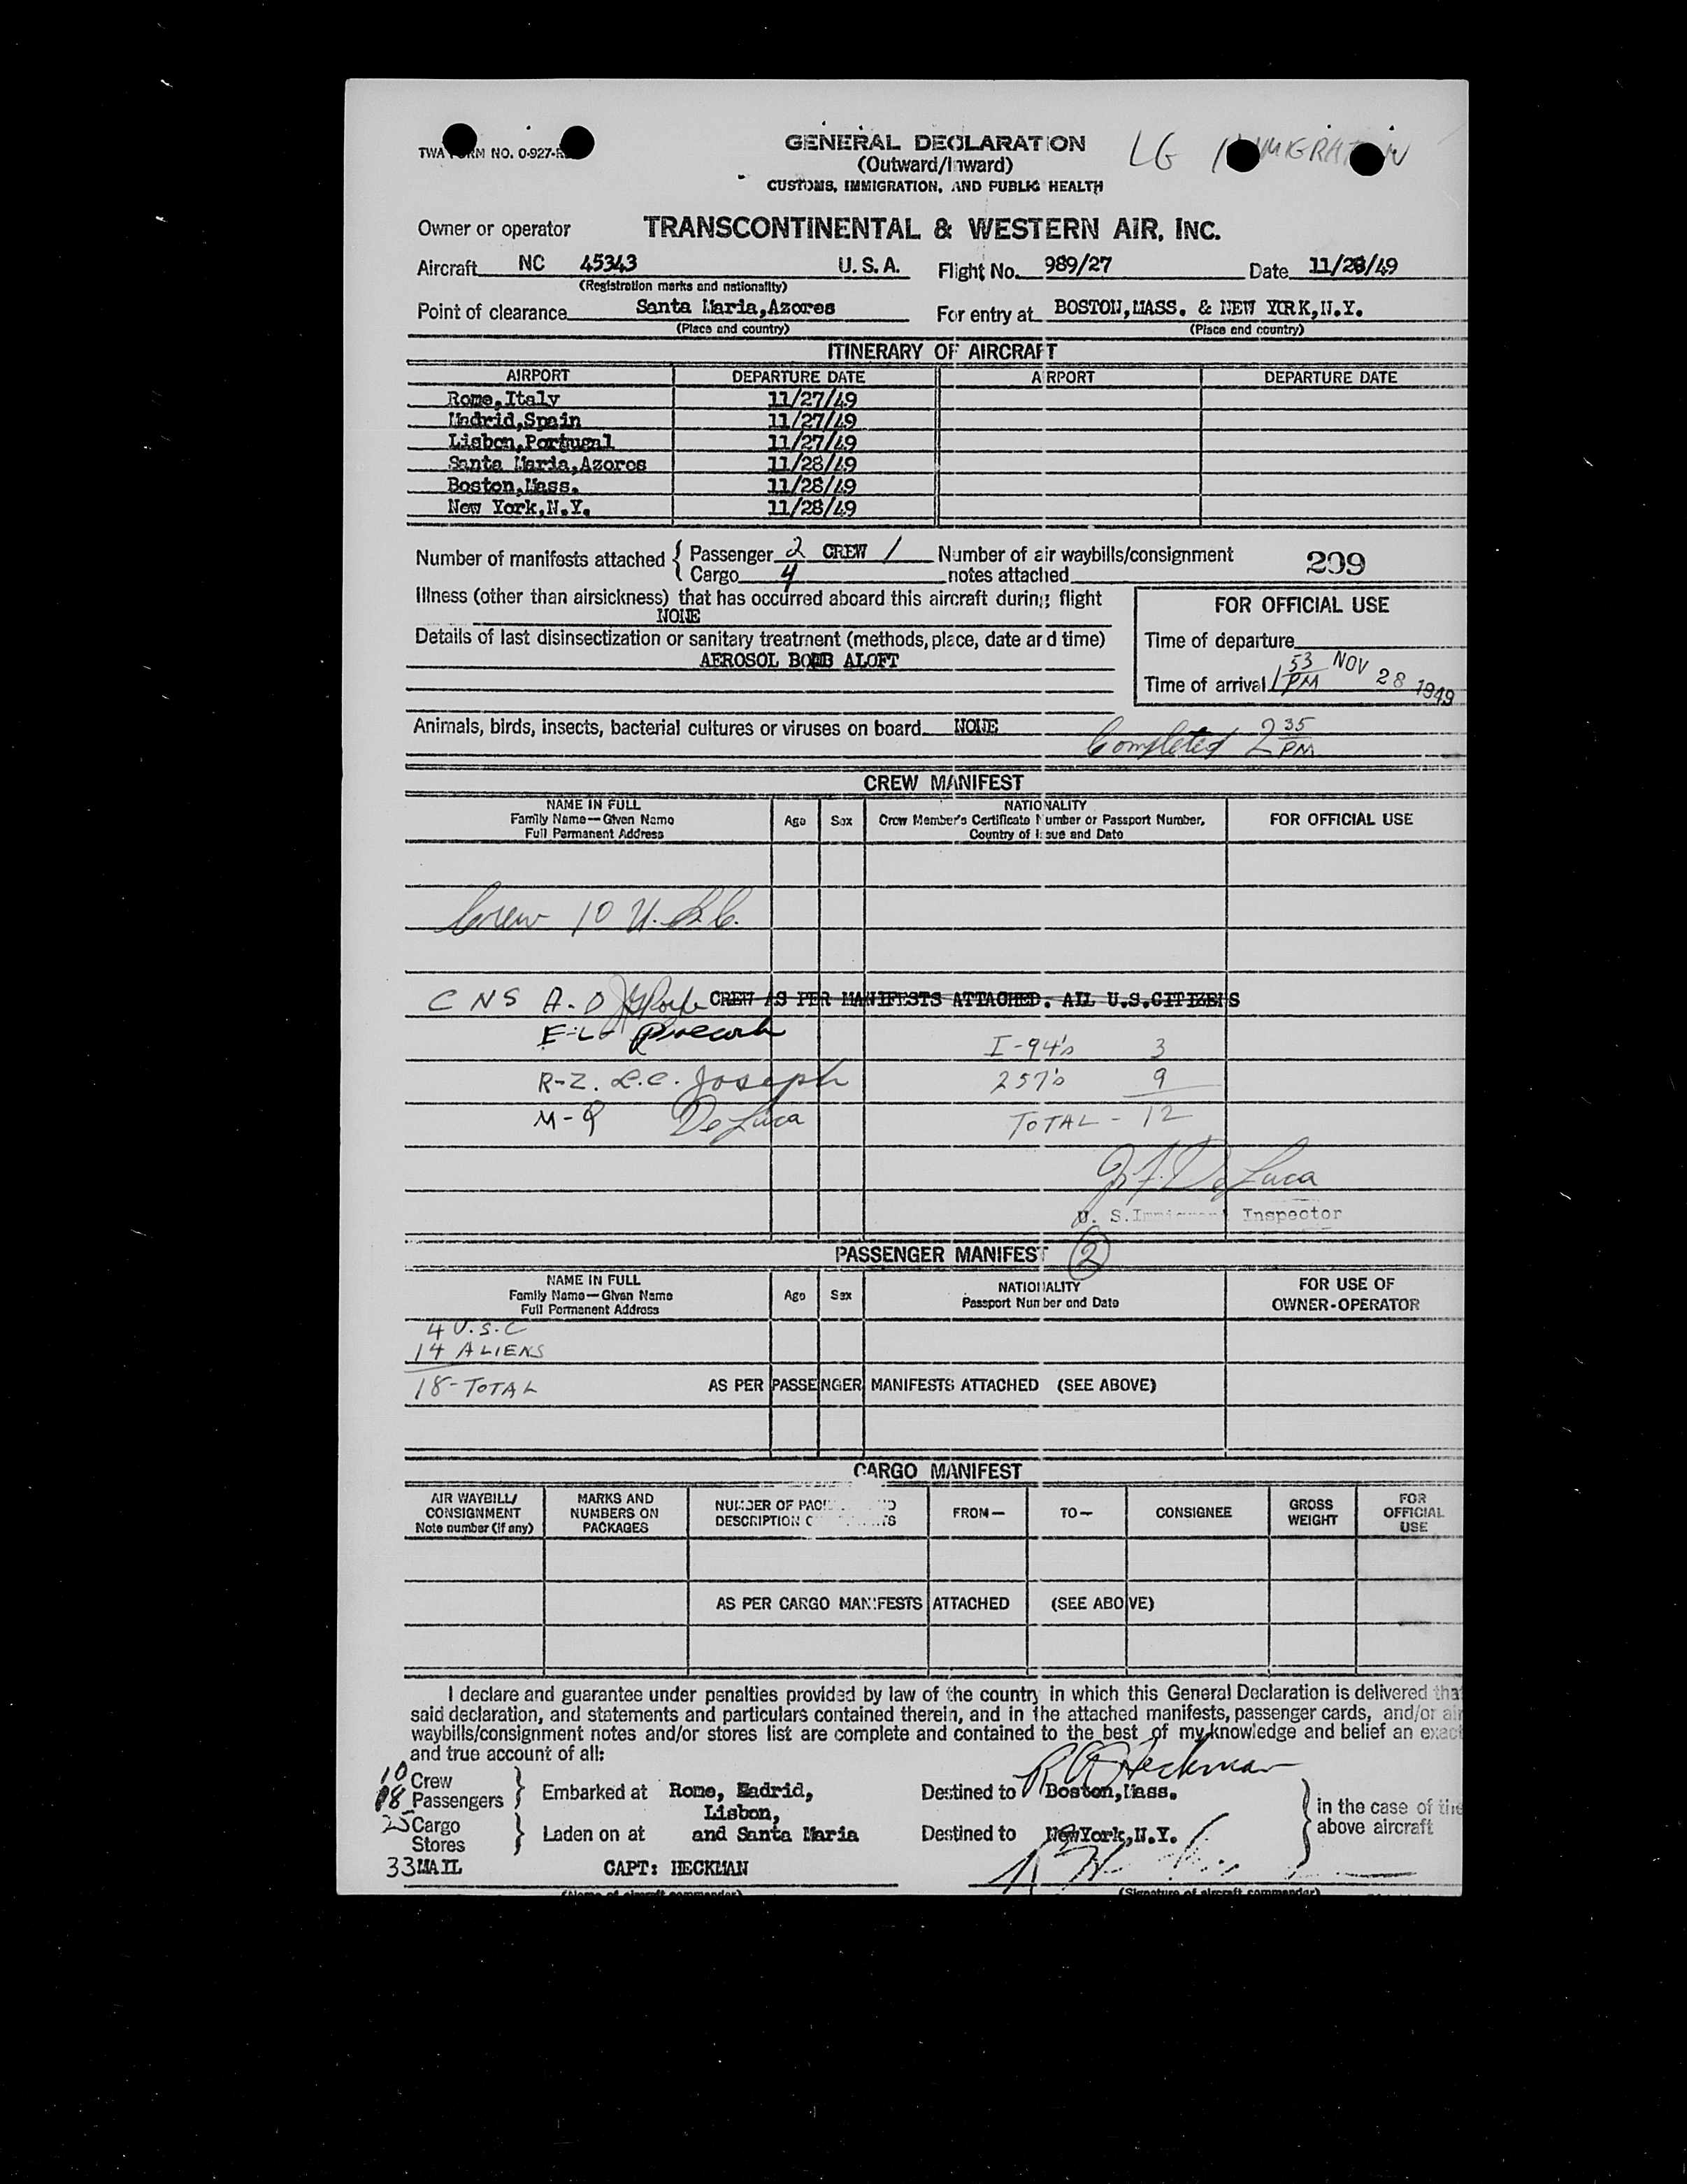 TWA FORM NO. 0-927-R
GENERAL DECLARATION
(Outward/Inward)
CUSTOMS, IMMIGRATION, AND PUBLIC HEALTH
LG IMMIGRATION
Owner or operator TRANSCONTINENTAL & WESTERN AIR, INC.
Aircraft NC 45343 U.S.A. Flight No. 989/27 Date 11/28/49
(Registration marks and nationality)
Point of clearance Santa Maria,Azores For entry at BOSTON,MASS. & NEW YORK,N.Y.
(Place and country) (Place and country)
ITINERARY OF AIRCRAFT
AIRPORT DEPARTURE DATE AIRPORT DEPARTURE DATE
Rome,Italy 11/27/49
Madrid,Spain 11/27/49
Lisbon,Portugal 11/27/49
Santa Maria,Azores 11/28/49
Boston,Mass. 11/28/49
New York,N.Y. 11/28/49
Number of manifests attached { Passenger 2 CREW 1 Number of air waybills/consignment 209
Cargo 4 notes attached
Illness (other than airsickness) that has occurred aboard this aircraft during flight
NONE
Details of last disinsectization or sanitary treatment (methods, place, date and time)
AEROSOL BOMB ALOFT
FOR OFFICIAL USE
Time of departure
Time of arrival 1 53 PM NOV 28 1949
Animals, birds, insects, bacterial cultures or viruses on board NONE
Completed 2 35 PM
CREW MANIFEST
NAME IN FULL
Family Name—Given Name
Full Permanent Address
Age Sex
NATIONALITY
Crew Member's Certificate Number or Passport Number,
Country of Issue and Date
FOR OFFICIAL USE
Crew 10 U.S.C.
CNS A-D CREW AS PER MANIFESTS ATTACHED. ALL U.S.CITIZENS
E-L
I-94's 3
R-Z. L.C. Joseph 257's 9
M-Q De Luca TOTAL - 12
J.F. De Luca
U. S. Immigrant Inspector
PASSENGER MANIFEST 2
NAME IN FULL
Family Name—Given Name
Full Permanent Address
Age Sex
NATIONALITY
Passport Number and Date
FOR USE OF
OWNER-OPERATOR
4 U.S.C
14 ALIENS
18-TOTAL AS PER PASSENGER MANIFESTS ATTACHED (SEE ABOVE)
CARGO MANIFEST
AIR WAYBILL/
CONSIGNMENT
Note number (if any)
MARKS AND
NUMBERS ON
PACKAGES
NUMBER OF
DESCRIPTION
FROM— TO— CONSIGNEE
GROSS
WEIGHT
FOR
OFFICIAL
USE
AS PER CARGO MANIFESTS ATTACHED (SEE ABOVE)
I declare and guarantee under penalties provided by law of the country in which this General Declaration is delivered that
said declaration, and statements and particulars contained therein, and in the attached manifests, passenger cards, and/or air
waybills/consignment notes and/or stores list are complete and contained to the best of my knowledge and belief an exact
and true account of all:
R A Heckman
10 Crew
18 Passengers } Embarked at Rome, Madrid, Destined to Boston,Mass.
Lisbon,
25 Cargo
Stores } Laden on at and Santa Maria Destined to New York,N.Y. } in the case of the
above aircraft
33 MAIL CAPT: HECKMAN
(Name of aircraft commander) (Signature of aircraft commander)